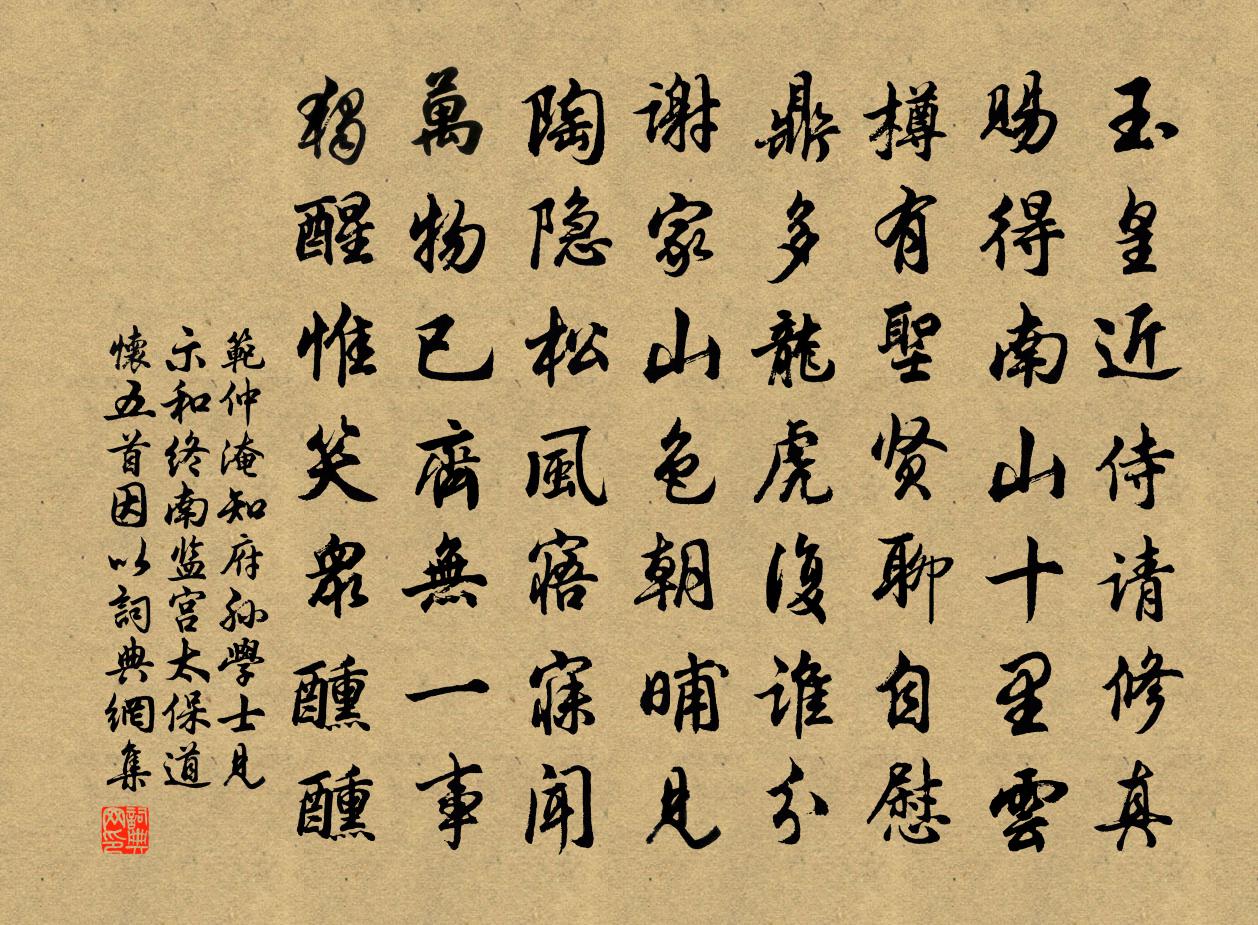 玉皇近侍请修真
赐得南山十里雲
樽有聖贤聊自慰
鼎多龍虎復谁分
谢家山色朝晡見
陶隐松風寤寐闻
萬物已齊無一事
獨醒惟笑眾醺醺
範仲淹知府孙學士見
示和终南监宫太保道
懷五首因以詞典網集
詞典网印